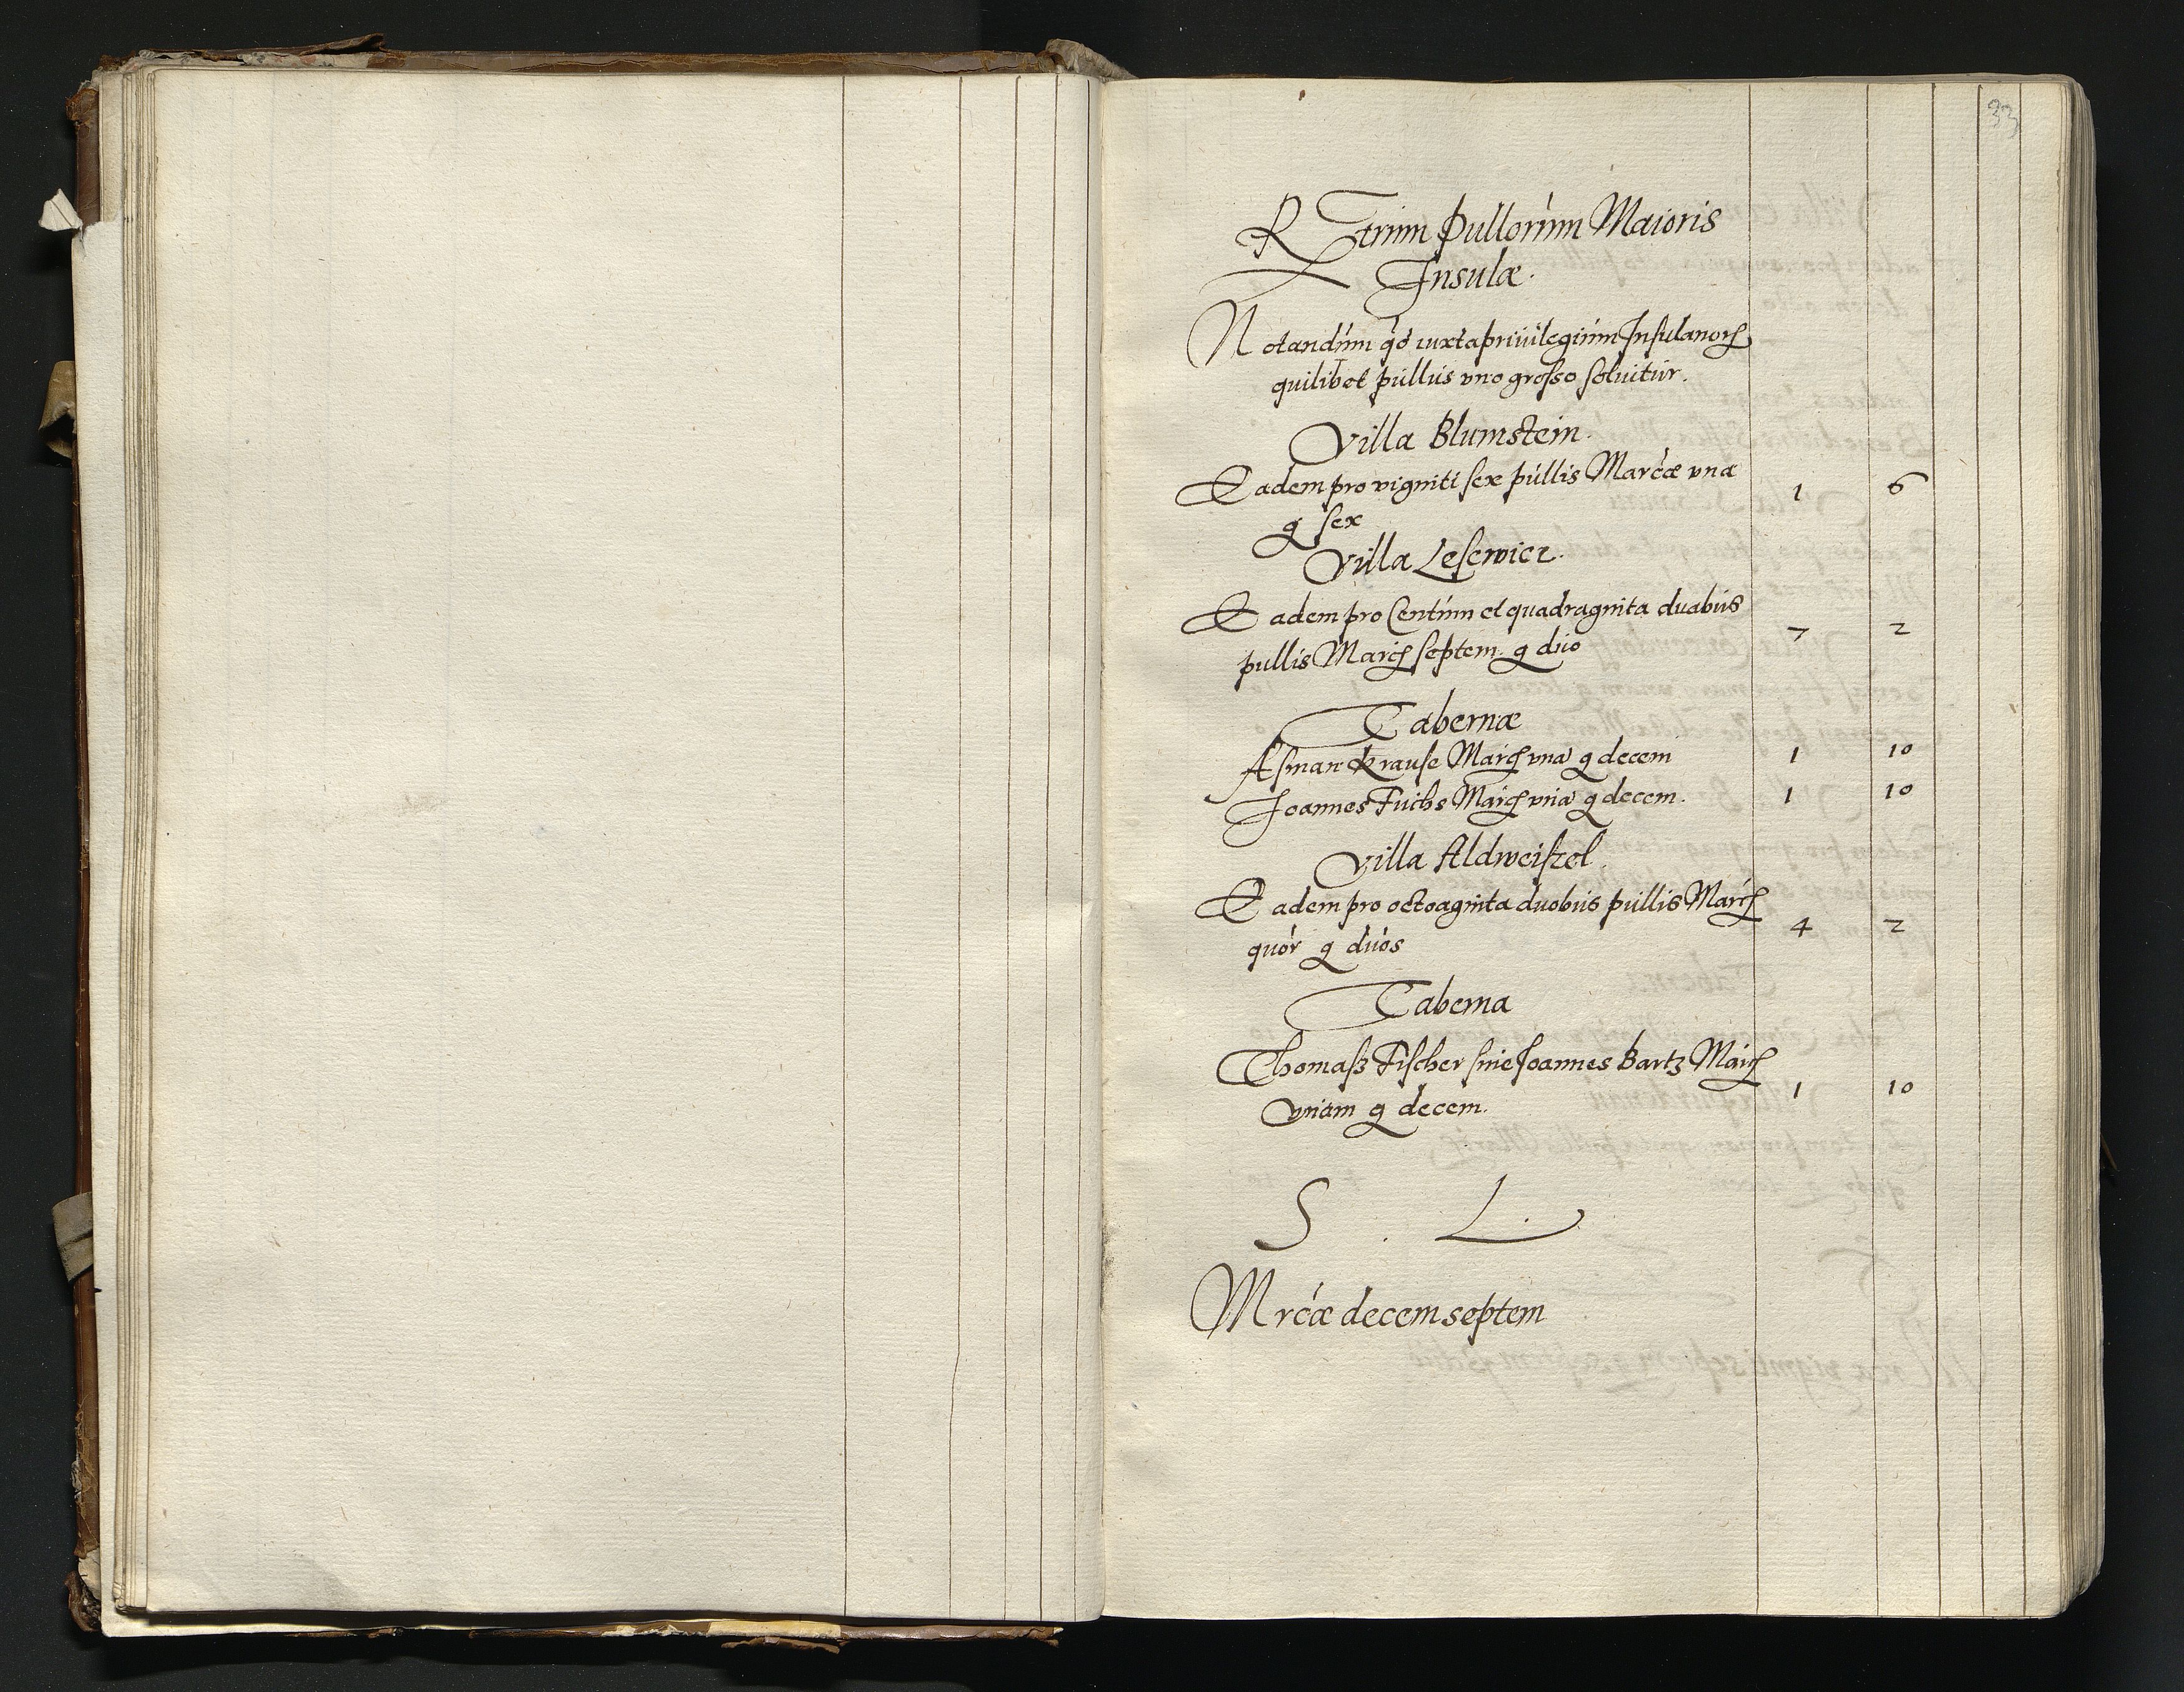 33
REstrum Pullorum Maioris
Insulæ.
Notandum qd iuxta priuilegium Insulanorꝝ
quilibet pullus uno grosso soluitur.
Villa Blumstein.
Eadem pro vigniti sex pullis Marcæ una
g sex 1 6
Villa Lesewicz.
Eadem pro Centum et quadraginta duabus
pullis Marcꝭ septem g duo 7 2
Tabernæ
Asman Krause Marcꝭ una g decem 1 10
Joannes Fuchs Marcꝭ una g decem. 1 10
Villa Aldweiszel.
Eadem pro octoaginta duobus pullis Marcꝭ
quor g duos 4 2
Taberna
Thomasz Fischer siue Joannes Bartz Marcꝭ
unam g decem. 1 10
S . L.
Mrcæ decem septem